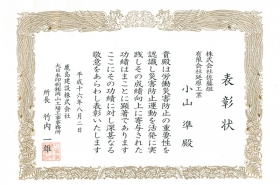 表彰状
株式会社佐藤組
有限会社延原工業
小山 準殿
貴殿は労働災害防止の重要性を
認識し災害防止運動を活発に実
践しその成績向上に寄与された
功績はまことに顕著であります
ここにその功績に対し深甚なる
敬意をあらわし表彰いたします
平成十六年八月二日
鹿島建設株式会社
所長 竹内一雄